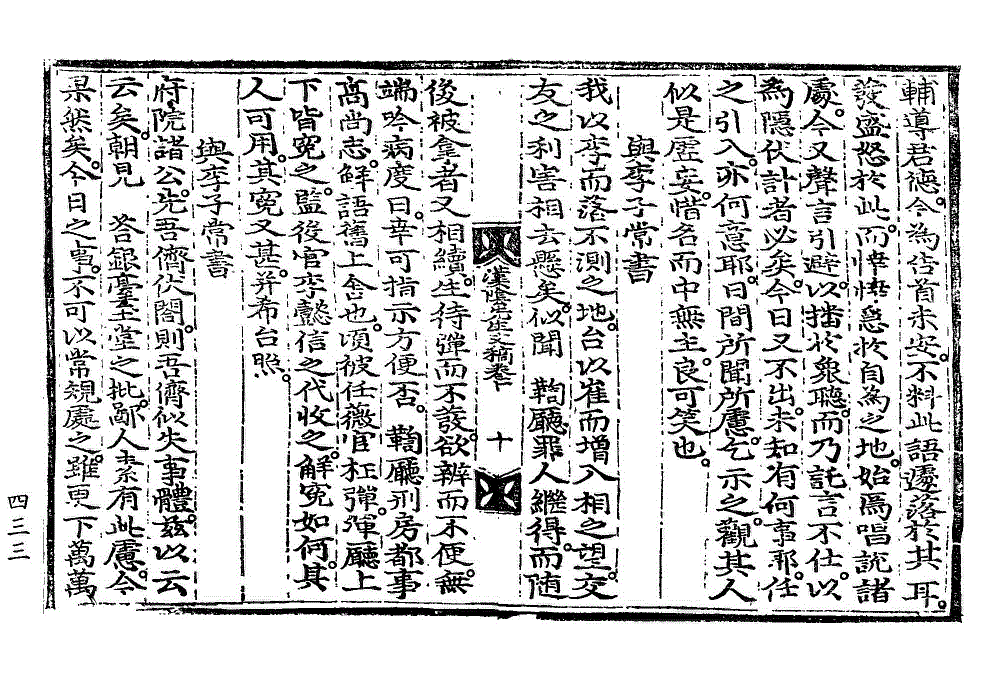 輔導君德。今爲告首未安。不料此語遽落於其耳。
發盛怒於此。而悻悻惡於自爲之地。始爲唱說諸
處。今又聲言引避。以播於衆聽。而乃託言不仕。以
爲隱伏計者必矣。今日又不出。未知有何事耶。任
之引入。亦何意耶。日間所聞所慮。乞示之。觀其人
似是虛妄。惜名而中無主。良可笑也。
與李子常書
我以李而落不測之地。台以崔而增入相之望。交
友之利害相去懸矣。似聞 鞫廳罪人繼得。而隨
漢陰先生文稿卷 十
後被拿者又相續。生待彈而不發。欲辨而不便。無
端吟病度日。幸可指示方便否。鞫廳刑房都事
高尚志。鮮語舊上舍也。頃被任薇官枉彈。渾廳上
下皆冤之。監役官李懿信之代收之。解冤如何。其
人可用。其冤又甚。并希台照。
與李子常書
府院諸公。先吾儕伏閤。則吾儕似失事體。玆以云
云矣。朝見 答銀臺玉堂之批。鄙人素有此慮。今
果然矣。今日之事。不可以常規處之。雖更下萬萬
四三三